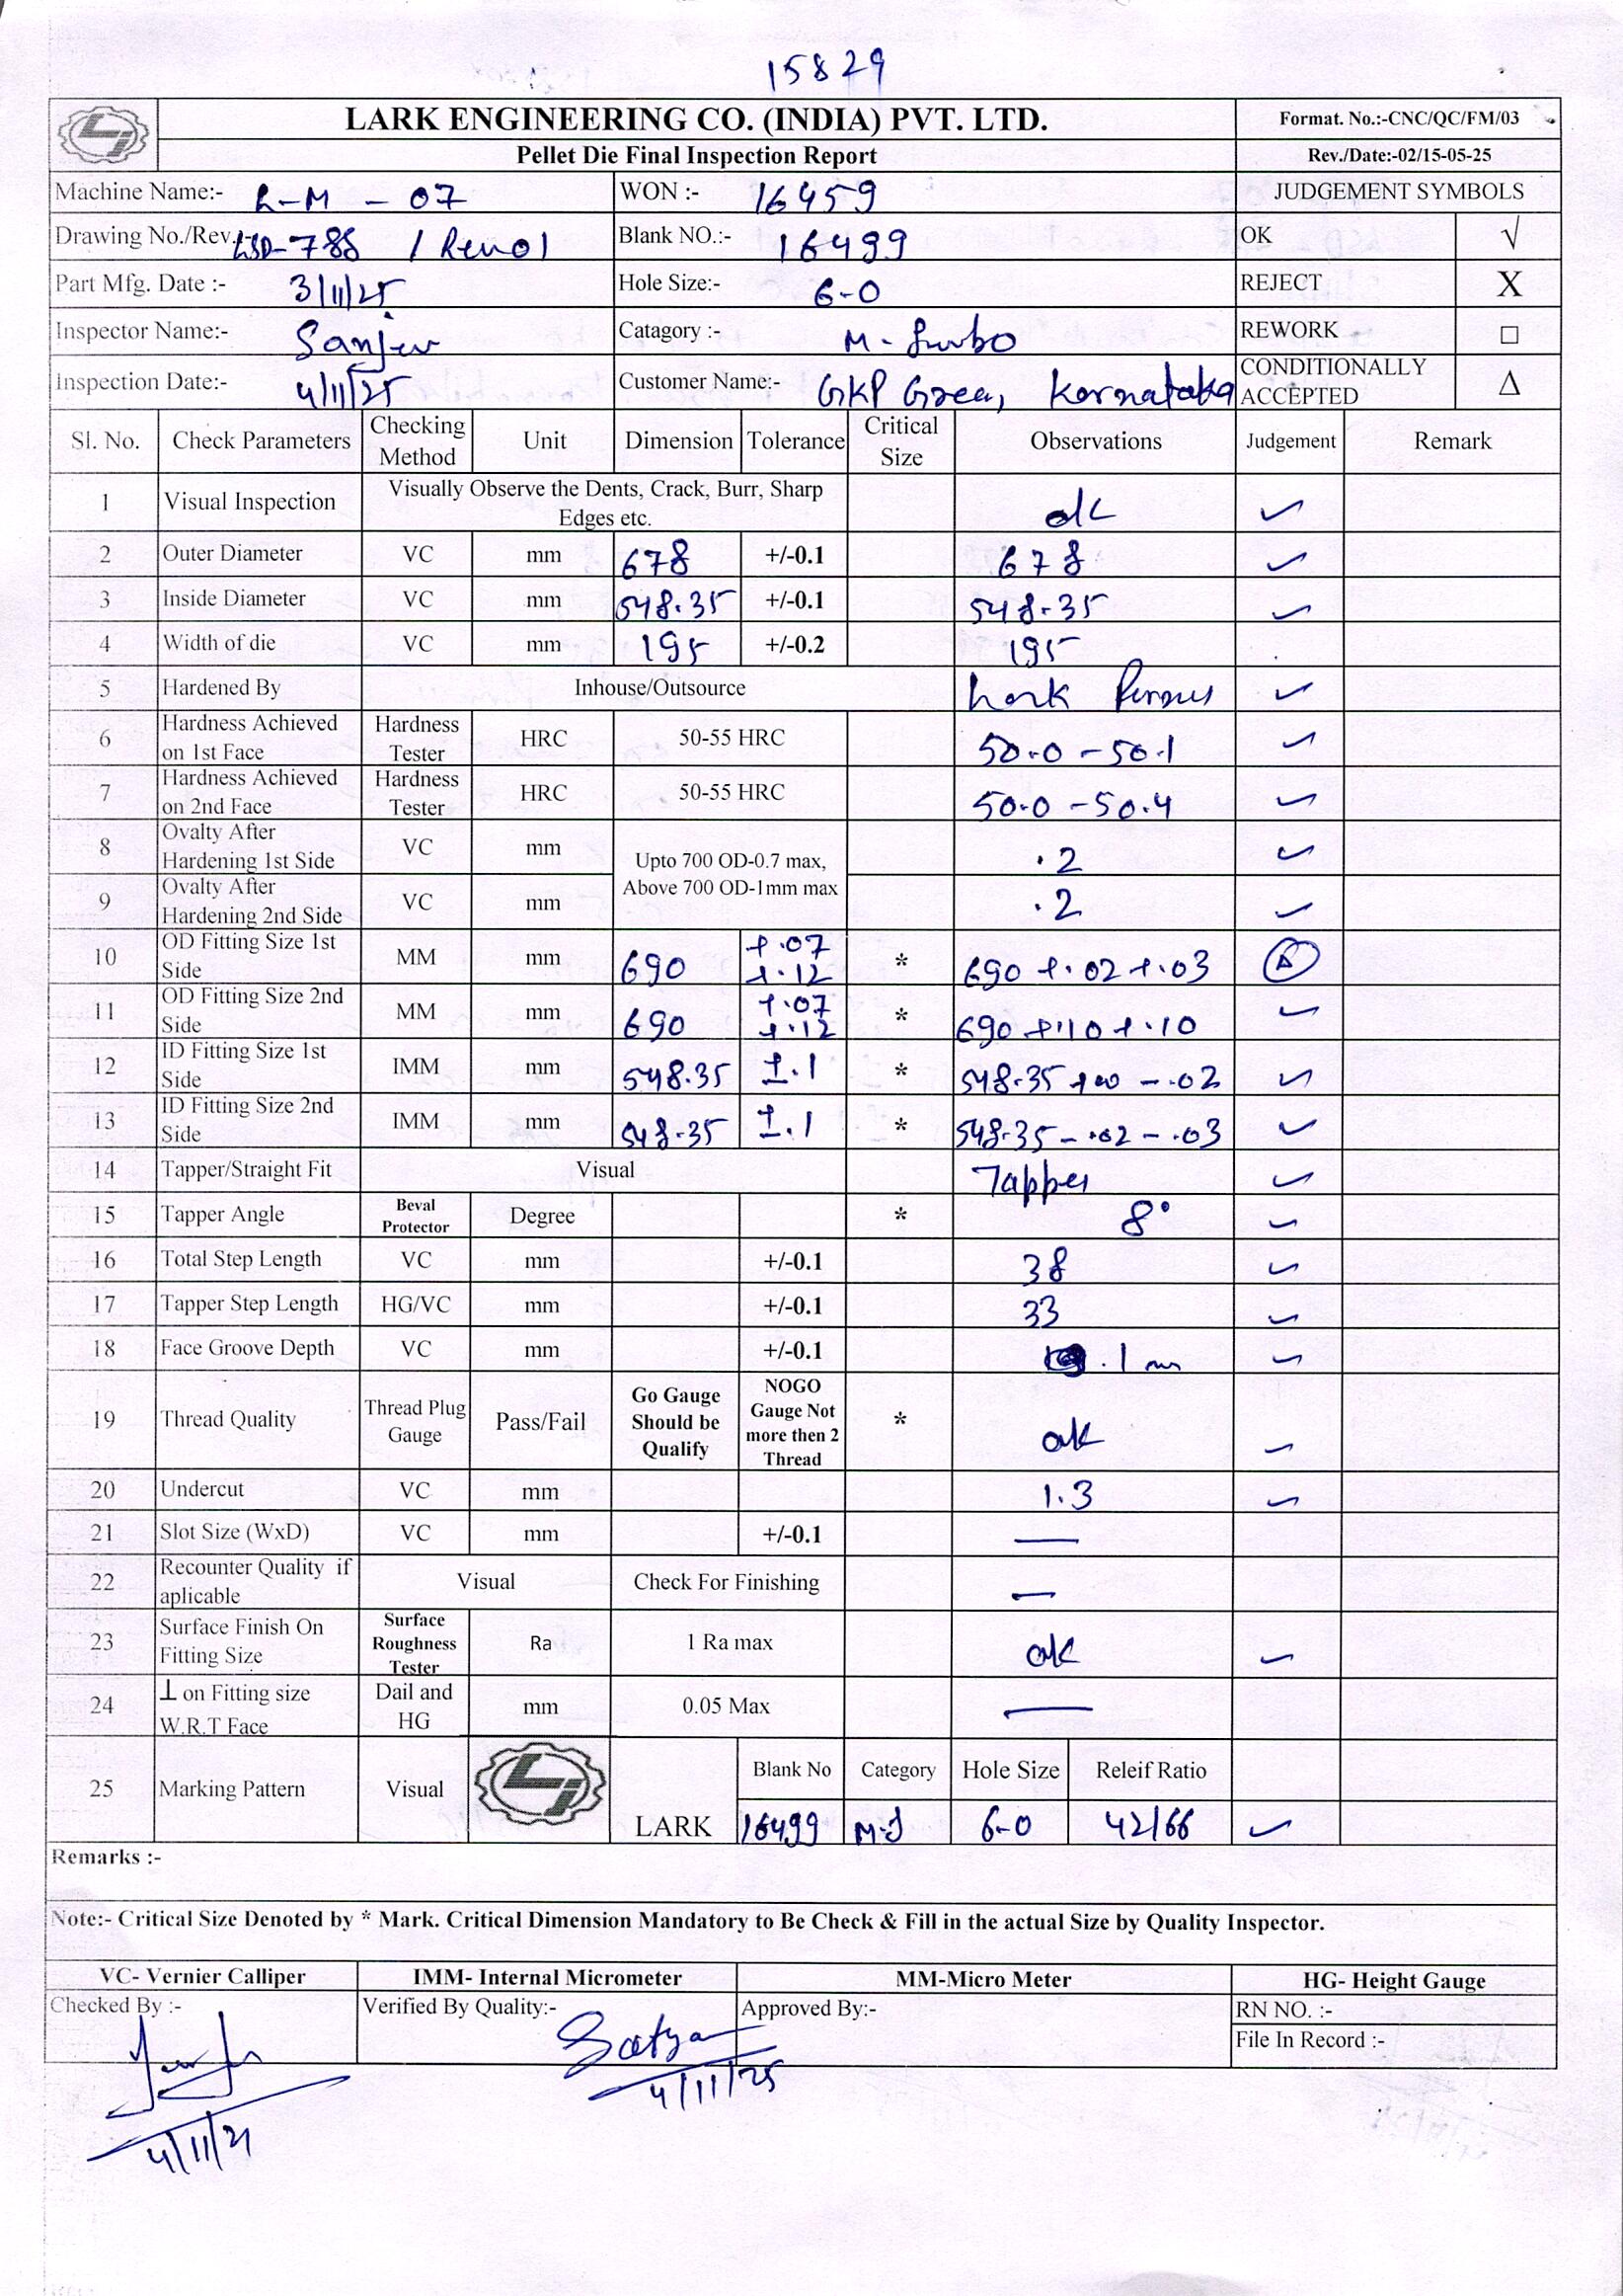 15829
LARK ENGINEERING CO. (INDIA) PVT. LTD. Format. No.:-CNC/QC/FM/03
Pellet Die Final Inspection Report Rev./Date:-02/15-05-25
Machine Name:- L-M - 07 WON :- 16459 JUDGEMENT SYMBOLS
Drawing No./Rev.:- LSD-788 / Rev01 Blank NO.:- 16499 OK √
Part Mfg. Date :- 3/11/25 Hole Size:- 6-0 REJECT X
Inspector Name:- Sanjev Catagory :- M- REWORK □
Inspection Date:- 4/11/25 Customer Name:- GKP Green, Karnataka CONDITIONALLY ACCEPTED Δ
Sl. No. Check Parameters Checking Method Unit Dimension Tolerance Critical Size Observations Judgement Remark
1 Visual Inspection Visually Observe the Dents, Crack, Burr, Sharp Edges etc. ok ✓
2 Outer Diameter VC mm 678 +/-0.1 678 ✓
3 Inside Diameter VC mm 548.35 +/-0.1 548.35 ✓
4 Width of die VC mm 195 +/-0.2 195
5 Hardened By Inhouse/Outsource Lark ✓
6 Hardness Achieved on 1st Face Hardness Tester HRC 50-55 HRC 50.0 - 50.1 ✓
7 Hardness Achieved on 2nd Face Hardness Tester HRC 50-55 HRC 50.0 - 50.4 ✓
8 Ovalty After Hardening 1st Side VC mm Upto 700 OD-0.7 max, Above 700 OD-1mm max .2 ✓
9 Ovalty After Hardening 2nd Side VC mm .2 ✓
10 OD Fitting Size 1st Side MM mm 690 +.07 +.12 * 690 +.02 +.03 Δ
11 OD Fitting Size 2nd Side MM mm 690 +.07 +.12 * 690 +.10 +.10 ✓
12 ID Fitting Size 1st Side IMM mm 548.35 ±.1 * 548.35 +00 -.02 ✓
13 ID Fitting Size 2nd Side IMM mm 548.35 ±.1 * 548.35 -.02 -.03 ✓
14 Tapper/Straight Fit Visual Tapper ✓
15 Tapper Angle Beval Protector Degree * 8° ✓
16 Total Step Length VC mm +/-0.1 38 ✓
17 Tapper Step Length HG/VC mm +/-0.1 33 ✓
18 Face Groove Depth VC mm +/-0.1 .1 mm ✓
19 Thread Quality Thread Plug Gauge Pass/Fail Go Gauge Should be Qualify NOGO Gauge Not more then 2 Thread * ok ✓
20 Undercut VC mm 1.3 ✓
21 Slot Size (WxD) VC mm +/-0.1 —
22 Recounter Quality if aplicable Visual Check For Finishing —
23 Surface Finish On Fitting Size Surface Roughness Tester Ra 1 Ra max ok ✓
24 ⊥ on Fitting size W.R.T Face Dail and HG mm 0.05 Max —
25 Marking Pattern Visual LARK Blank No Category Hole Size Releif Ratio
16499 M-J 6-0 42/66 ✓
Remarks :-
Note:- Critical Size Denoted by * Mark. Critical Dimension Mandatory to Be Check & Fill in the actual Size by Quality Inspector.
VC- Vernier Calliper IMM- Internal Micrometer MM-Micro Meter HG- Height Gauge
Checked By :- Verified By Quality:- Satya Approved By:- RN NO. :-
File In Record :-
4/11/25
4/11/21